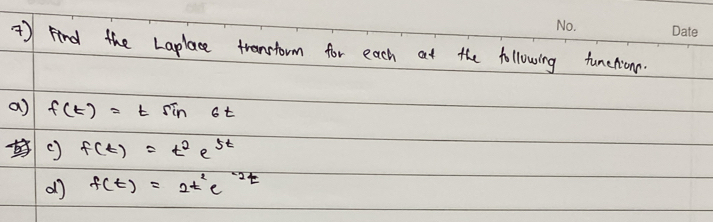 No. Date
7) Find the Laplace transform for each of the following functions.
a) f(t) = t sin 6t
c) f(t) = t² e^5t
d) f(t) = 2t² e^-2t